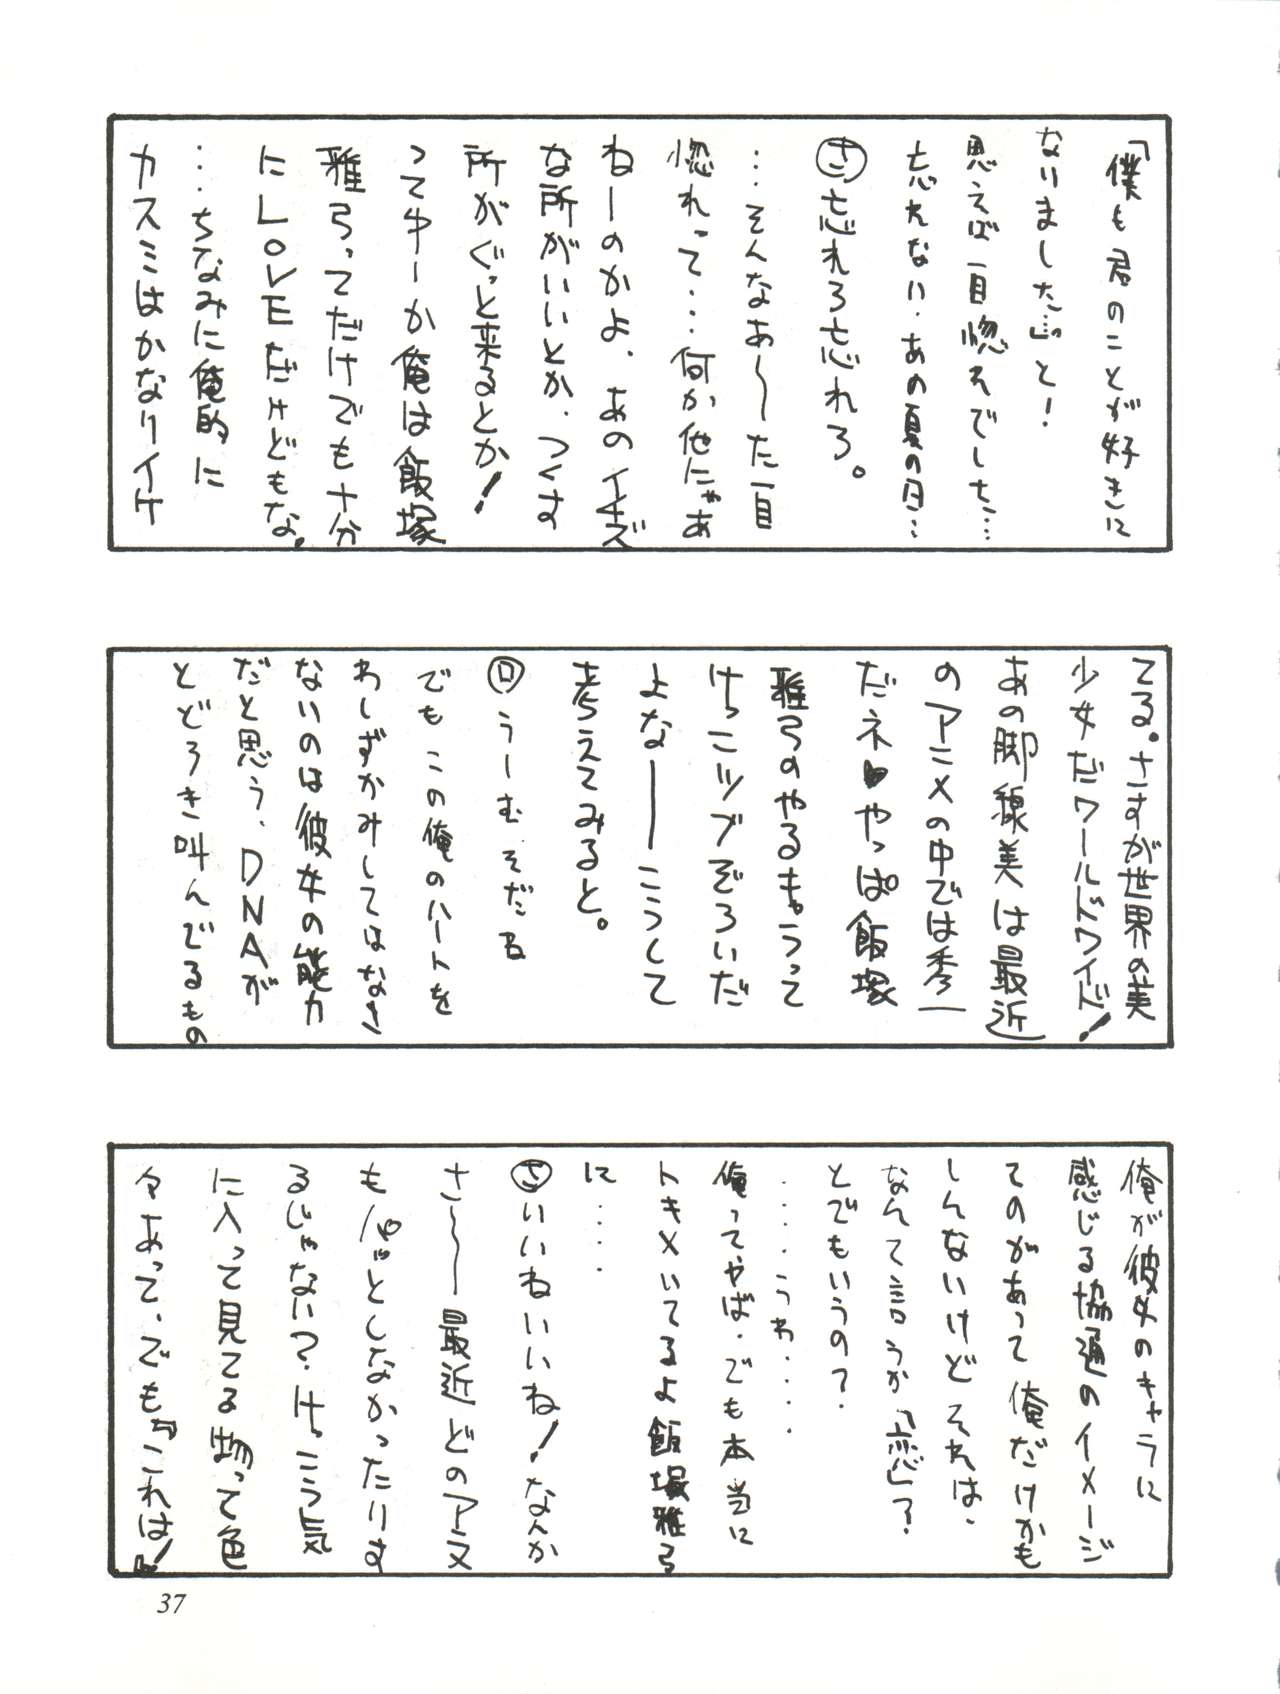 「僕も君のことが好きに
なりました…。」と！
思えば一目惚れでした…
忘れない．あの夏の日…
㋚忘れろ忘れろ。
…そんなあ〜た一目
惚れって…何か他にゃあ
ねーのかよ．あのイキズ
な所がいいとか．つくす
所がぐっと来るとか！
ってゆーか俺は飯塚
雅弓ってだけでも十分
にLOVEだけどもな。
…ちなみに俺的に
カスミはかなりイケ
てる。さすが世界の美
少女だワールドワイド！
あの脚線美は最近
のアニメの中では秀一
だネ♥やっぱ飯塚
雅弓のやるキャラって
けっこツブぞろいだ
よなーーこうして
考えてみると。
㋺うーむそだね
でもこの俺のハートを
わしずかみしてはなさ
ないのは彼女の能力
だと思う．DNAが
とどろき叫んでるもの
俺が彼女のキャラに
感じる協通のイメージ
てのがあって俺だけかも
しんないけどそれは．
なんて言うか「恋」？
とでもいうの？
……うわ……
俺ってやば．でも本当に
トキメいてるよ飯塚雅弓
に……
㋚いいねいいね！なんか
さ〜最近どのアニメ
もパッとしなかったりす
るじゃない？けっこう気
に入って見てる物って色
々あって．でも『これは！』
37